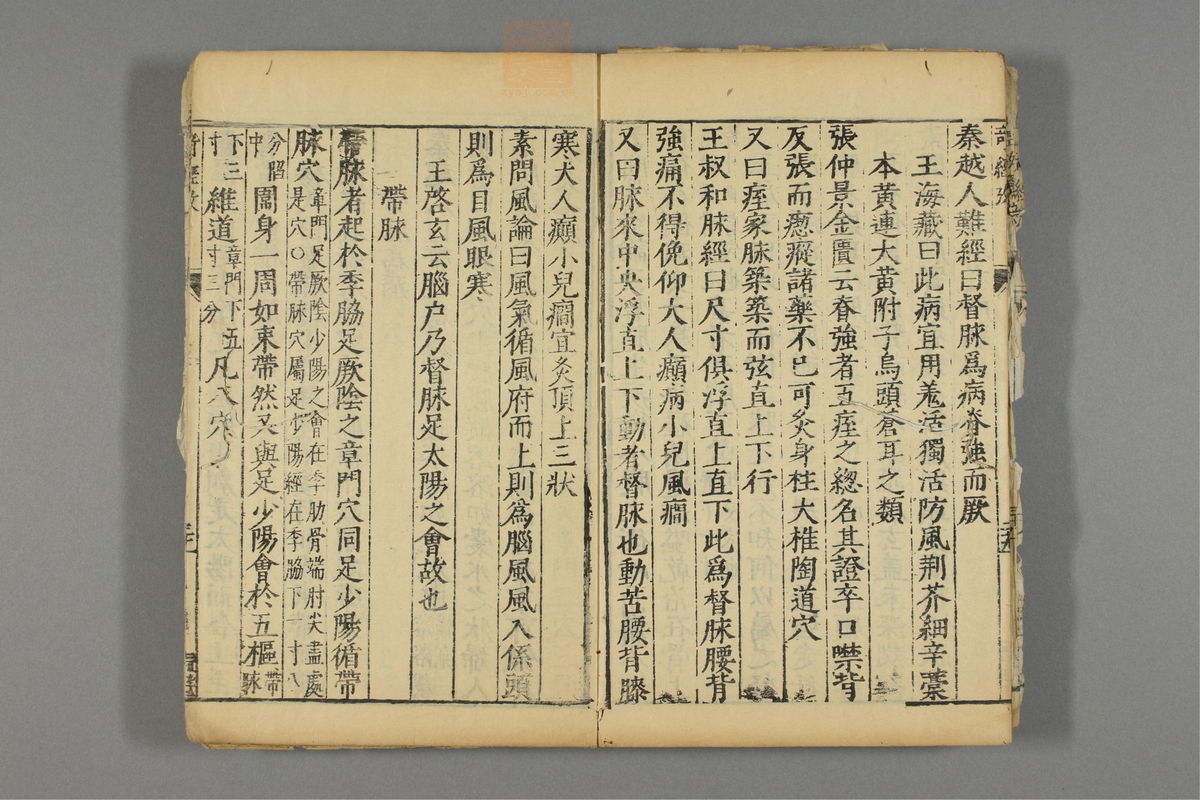 秦越人難經曰督脉爲病脊強而厥
王海藏曰此病宜用羗活獨活防風荆芥細辛藁
本黃連大黃附子烏頭蒼耳之類
張仲景金匱云脊強者五痓之總名其證卒口噤背
反張而瘛瘲諸藥不已可灸身柱大椎陶道穴
又曰痓家脉築築而弦直上下行
王叔和脉經曰尺寸俱浮直上直下此爲督脉腰背
強痛不得俛仰大人癲病小兒風癎
又曰脉來中央浮直上下動者督脉也動苦腰背膝
寒大人癲小兒癎宜灸頂上三壯
素問風論曰風氣循風府而上則爲腦風風入係頭
則爲目風眼寒
王啓玄云腦户乃督脉足太陽之會故也
帶脉
帶脉者起於季脇足厥陰之章門穴同足少陽循帶
脉穴章門足厥陰少陽之會在季肋骨端肘尖盡處
是穴○帶脉穴屬足少陽經在季脇下一寸八
分陷
中圍身一周如束帶然又與足少陽會於五樞帶
脉
下三
寸維道章門下五
寸三分凡八穴